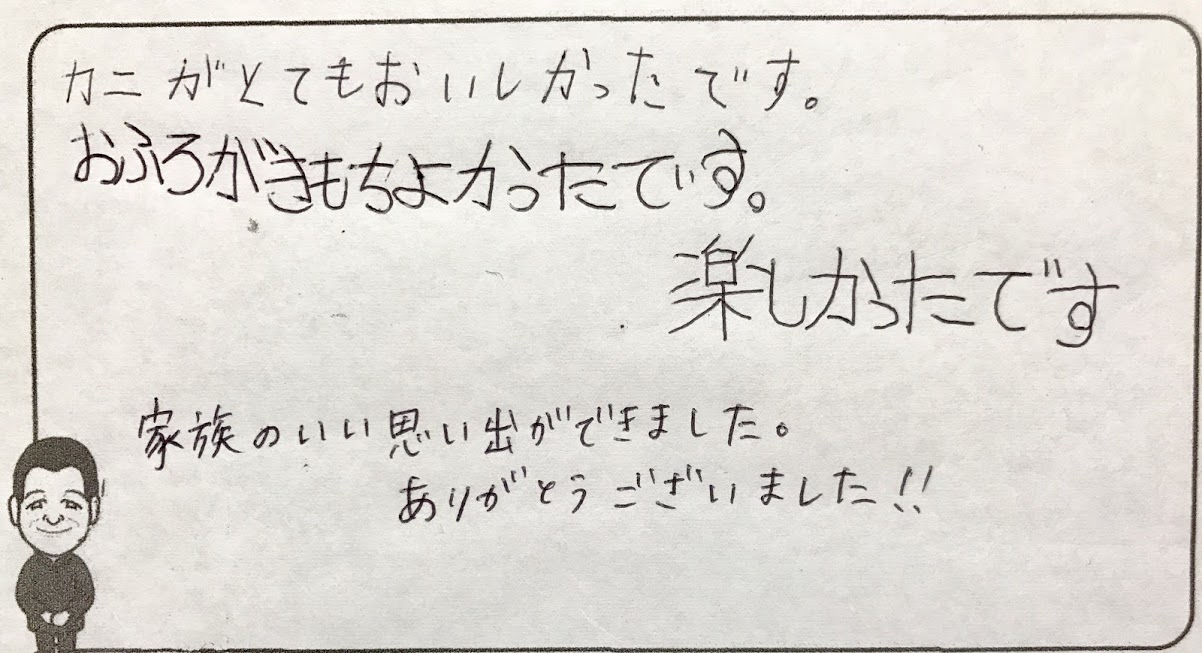 カニがとてもおいしかったです。
おふろがきもちよかったです。
楽しかったです
家族のいい思い出ができました。
ありがとうございました!!